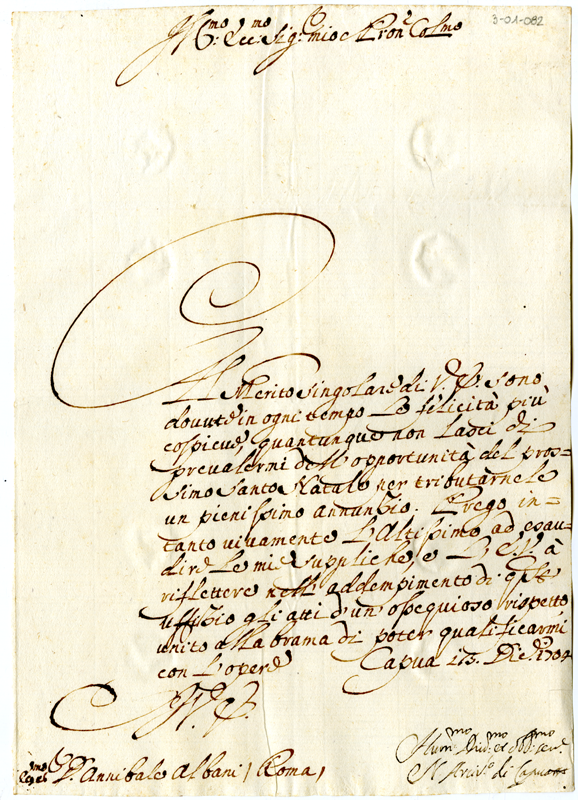 3-01-082
Ill:mo et Ecc:mo Sig:r mio e Pron Col:mo
Al Merito singolare di V. E. sono
dovute in ogni tempo le felicità più
cospicue, quantunque non lasci di
prevalermi dell'opportunità del pros-
simo Santo Natale per tributarnele
un pienissimo annunzio. Prego in=
tanto vivamente l'Altissimo ad esau=
dire le mie suppliche, e l'E. V. à
riflettere nell'addempimento di q.to
uffizio gli atti d'un ossequioso rispetto
unito alla brama di poter qualificarmi
con l'opere Capua 13. Dic.e 1704
D. Annibale Albani / Roma /
Hum.mo Div.mo et Obb.mo ser.
N Arciv.o di Capua